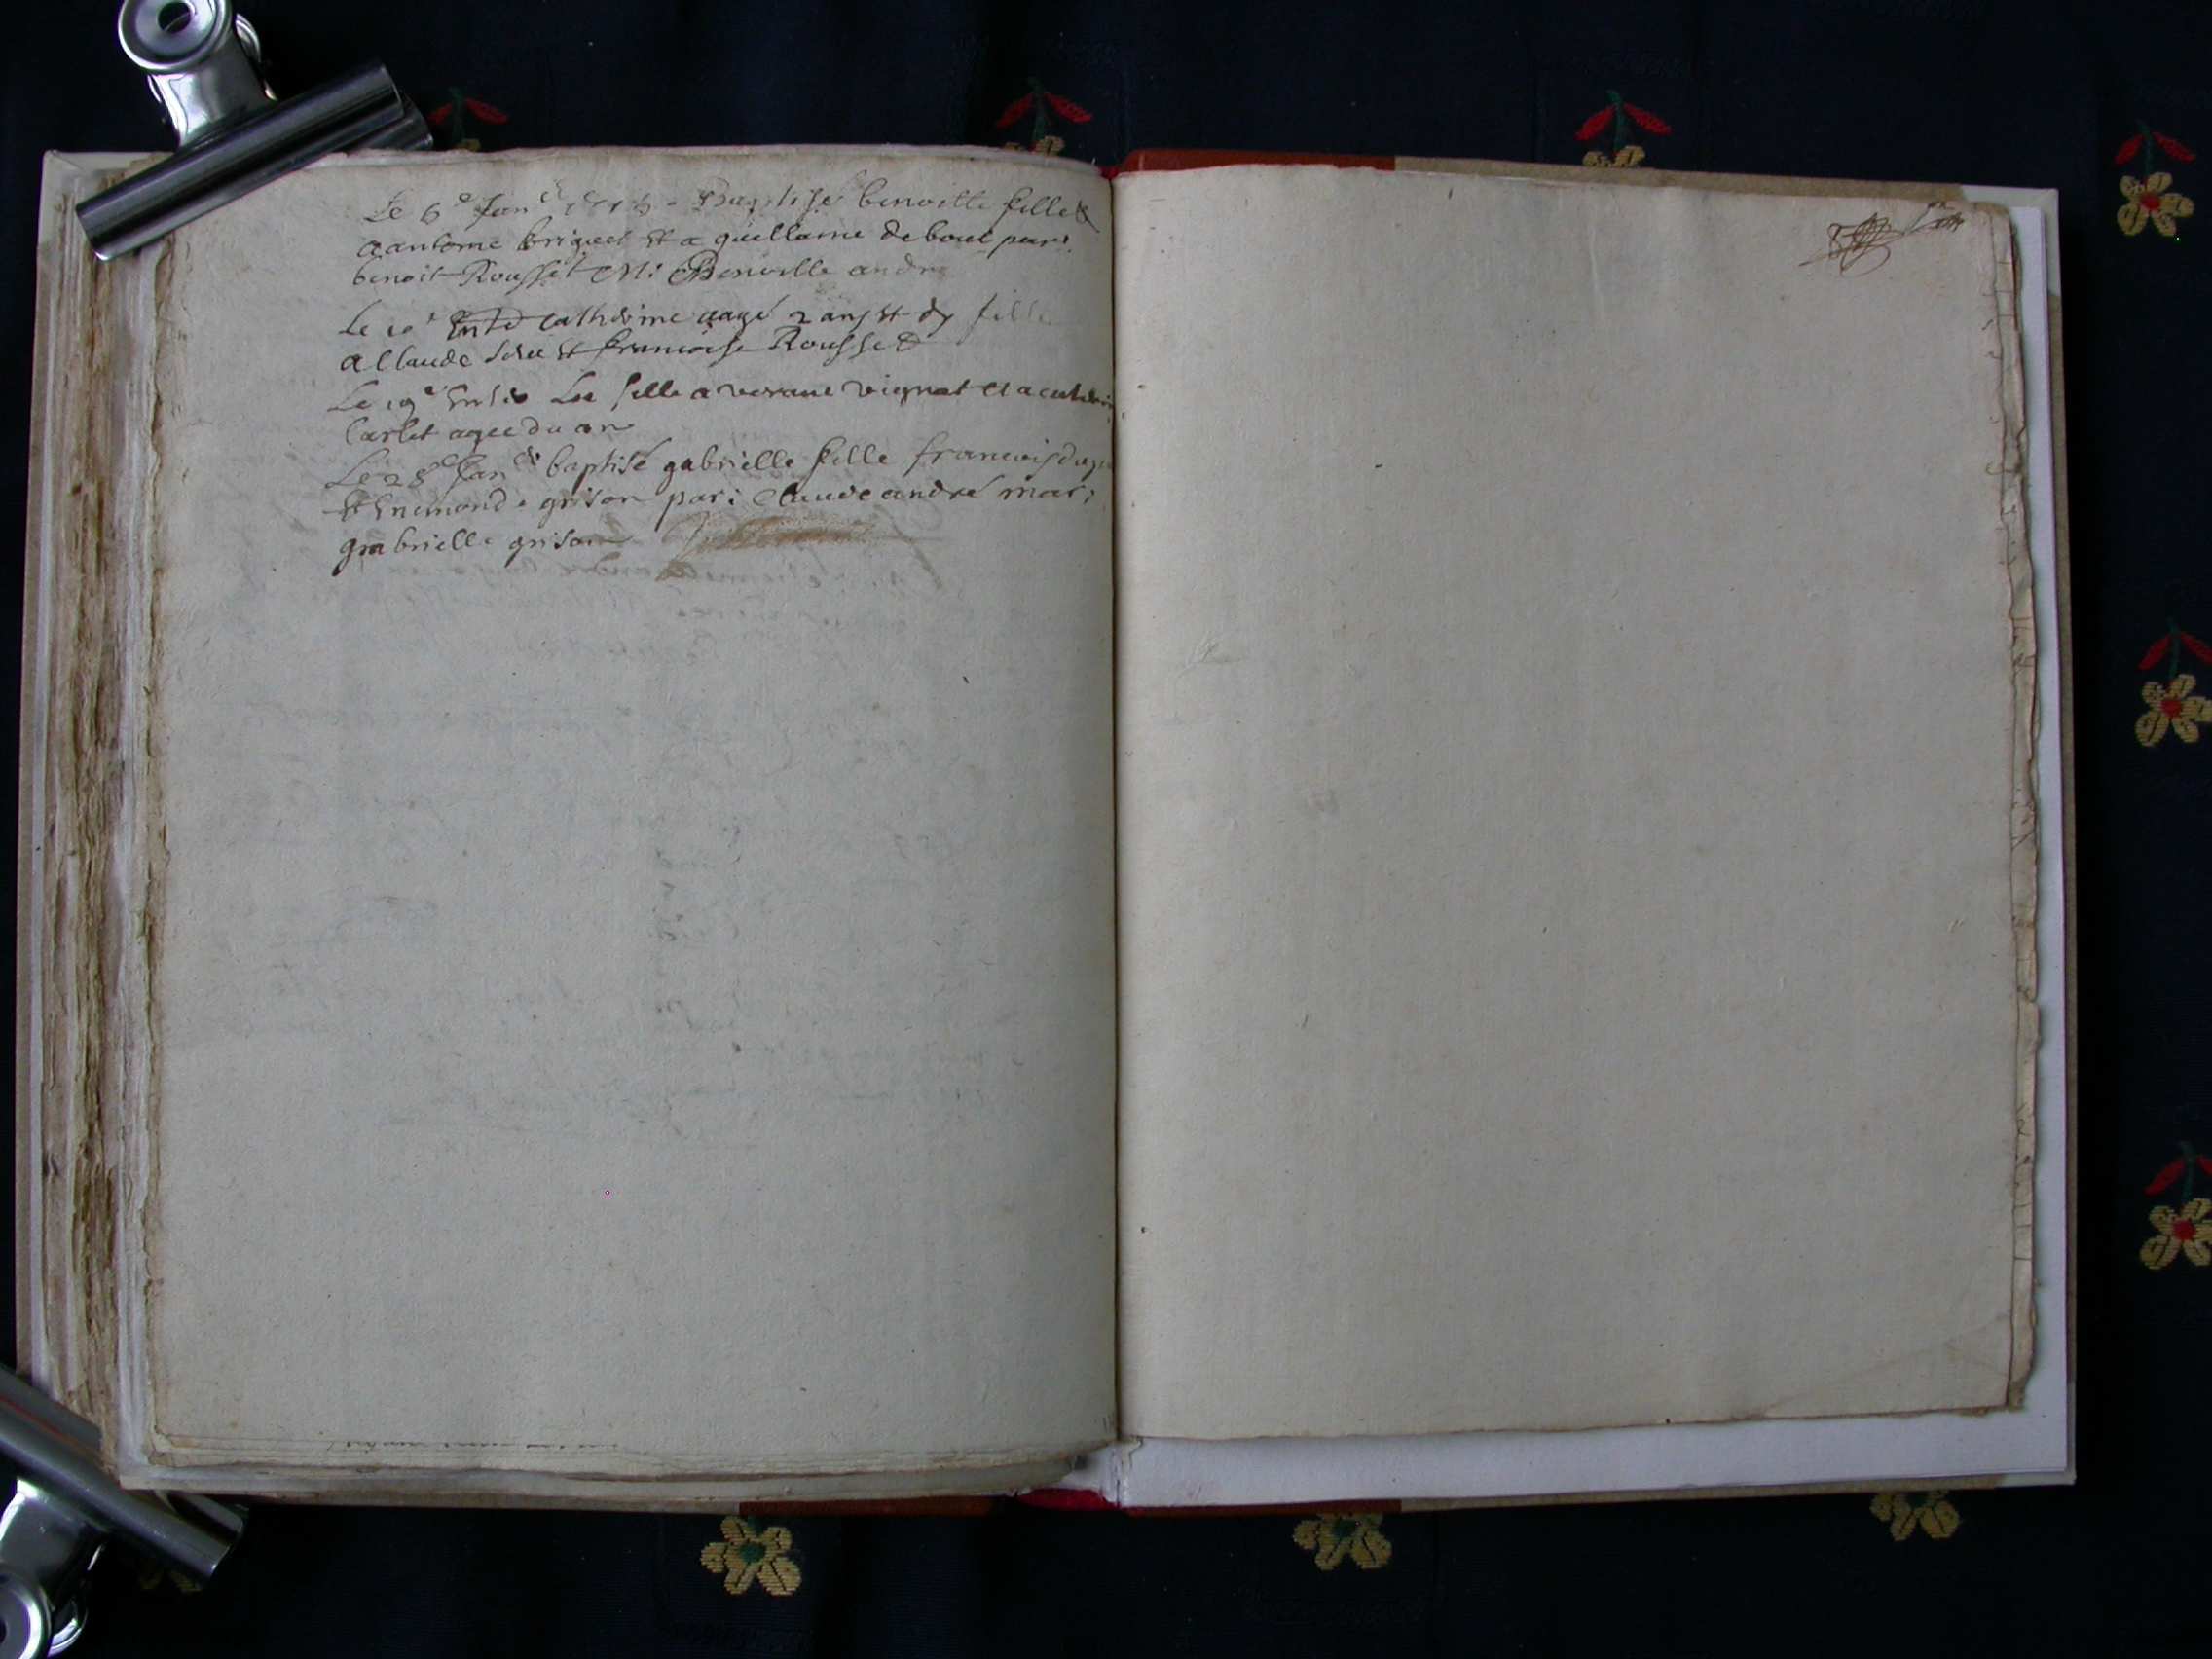 Le 6e Jan Baptisé benoitte fille
a antome briquet et a guellame de bout par:
benoit Rousset M: Benoitte andre
Le 10e Enté catherine aagé 2 ans et dy fille
a Claude et francoise Rousset
Le 19e Enté fille a verane vignat et a
Carlet agee du an
Le 28e Jan baptisé gabrielle fille francois
et Enemonde grison par: Claude andré mar:
gabrielle grison